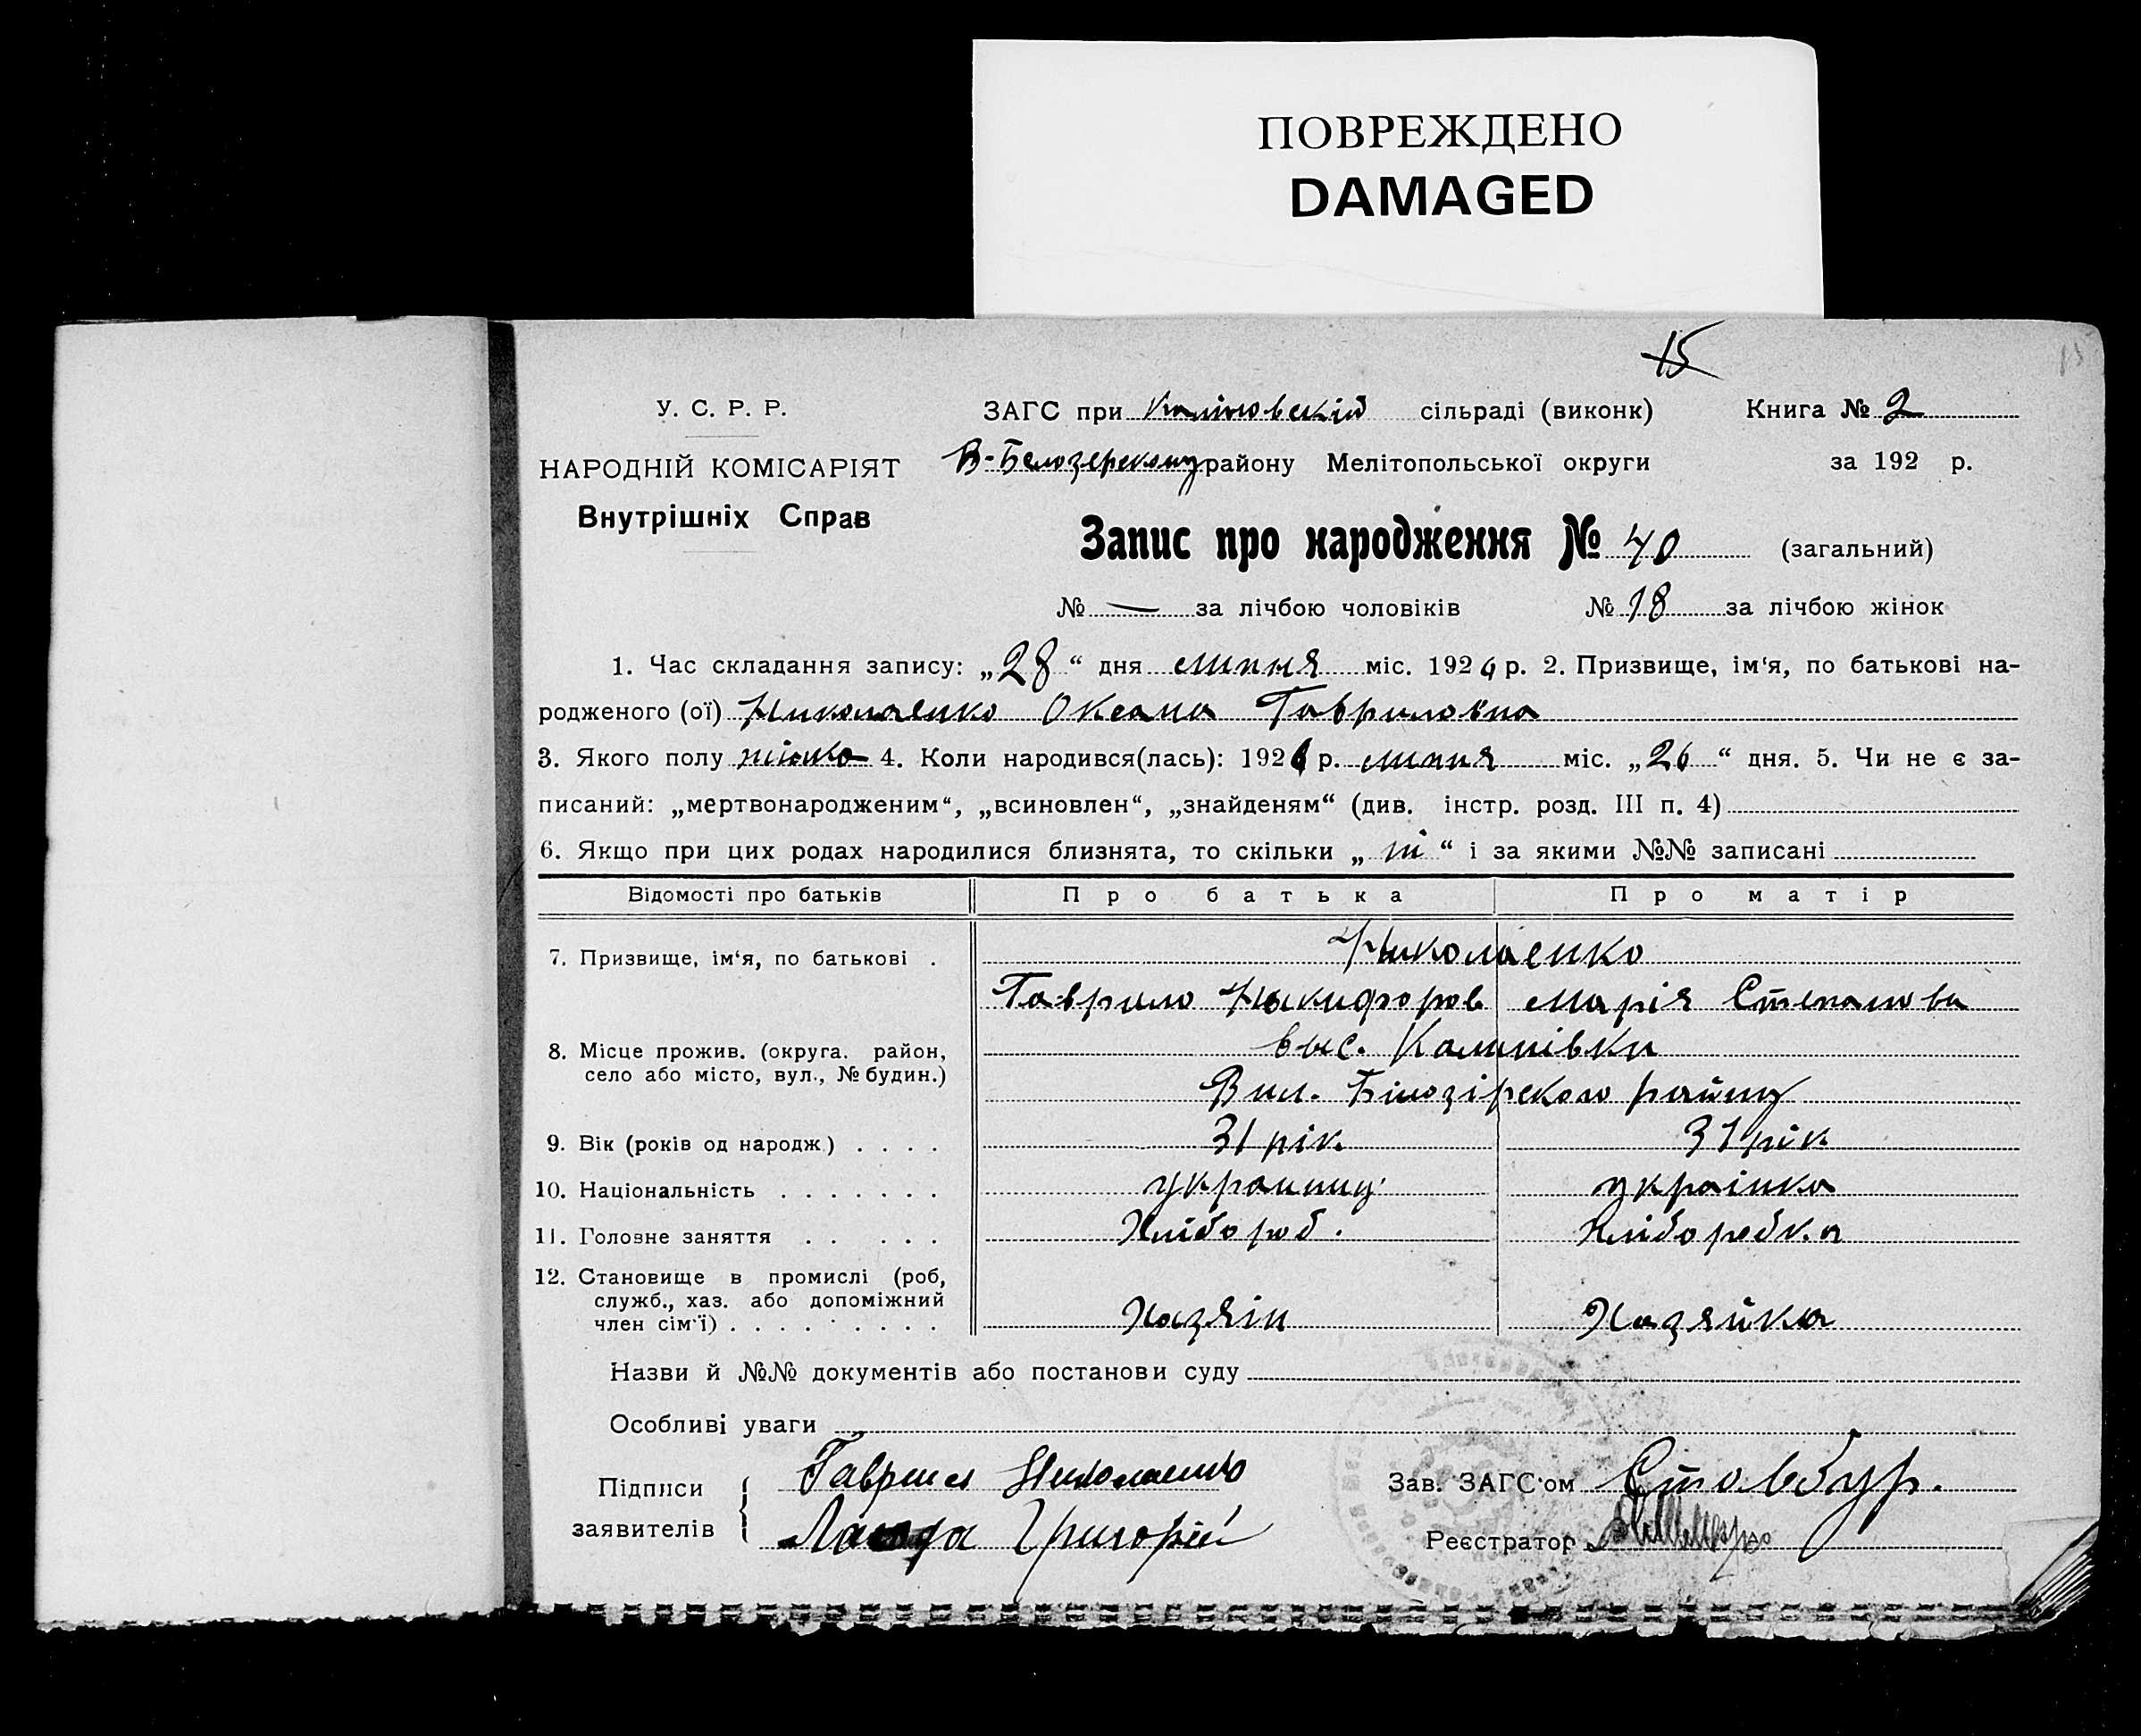 ПОВРЕЖДЕНО
DAMAGED
15
15
У. С. Р. Р.
НАРОДНІЙ КОМІСАРІЯТ
Внутрішніх Справ
ЗАГС при Калиновскій сільраді (виконк) Книга № 2
В-Белозерському району Мелітопольської округи за 192 р.
Запис про народження № 40 (загальний)
№ — за лічбою чоловіків № 18 за лічбою жінок
1. Час складання запису: „28“ дня липня міс. 192 р. 2. Призвище, ім‘я, по батькові на-
родженого (ої) Николаенко Оксана Гавриловна
3. Якого полу жінка 4. Коли народився(лась): 1926 р. липня міс. „26“ дня. 5. Чи не є за-
писаний: „мертвонародженим“, „всиновлен“, „знайденям“ (див. інстр. розд. III п. 4)
6. Якщо при цих родах народилися близнята, то скільки „ні“ і за якими №№ записані
Відомості про батьків Про батька Про матір
7. Призвище, ім‘я, по батькові . Николаенко
Гаврило Никифоров Марія Степанова
8. Місце прожив. (округа. район, село або місто, вул., № будин.) выс. Калинівки
Вил. Білозірского району
9. Вік (років од народж.) . . . . 31 рік. 31 рік.
10. Національність . . . . . . . украинц. украінка
11. Головне заняття . . . . . Хлібороб. Хліборобка
12. Становище в промислі (роб, служб., хаз. або допоміжний член сім‘ї) . . . . . . . . . Хазяін Хазяйка
Назви й №№ документів або постанови суду
Особливі уваги
Підписи заявителів Гаврил Николаенко
Григорій
Зав. ЗАГС‘ом Стовбур.
Реєстратор